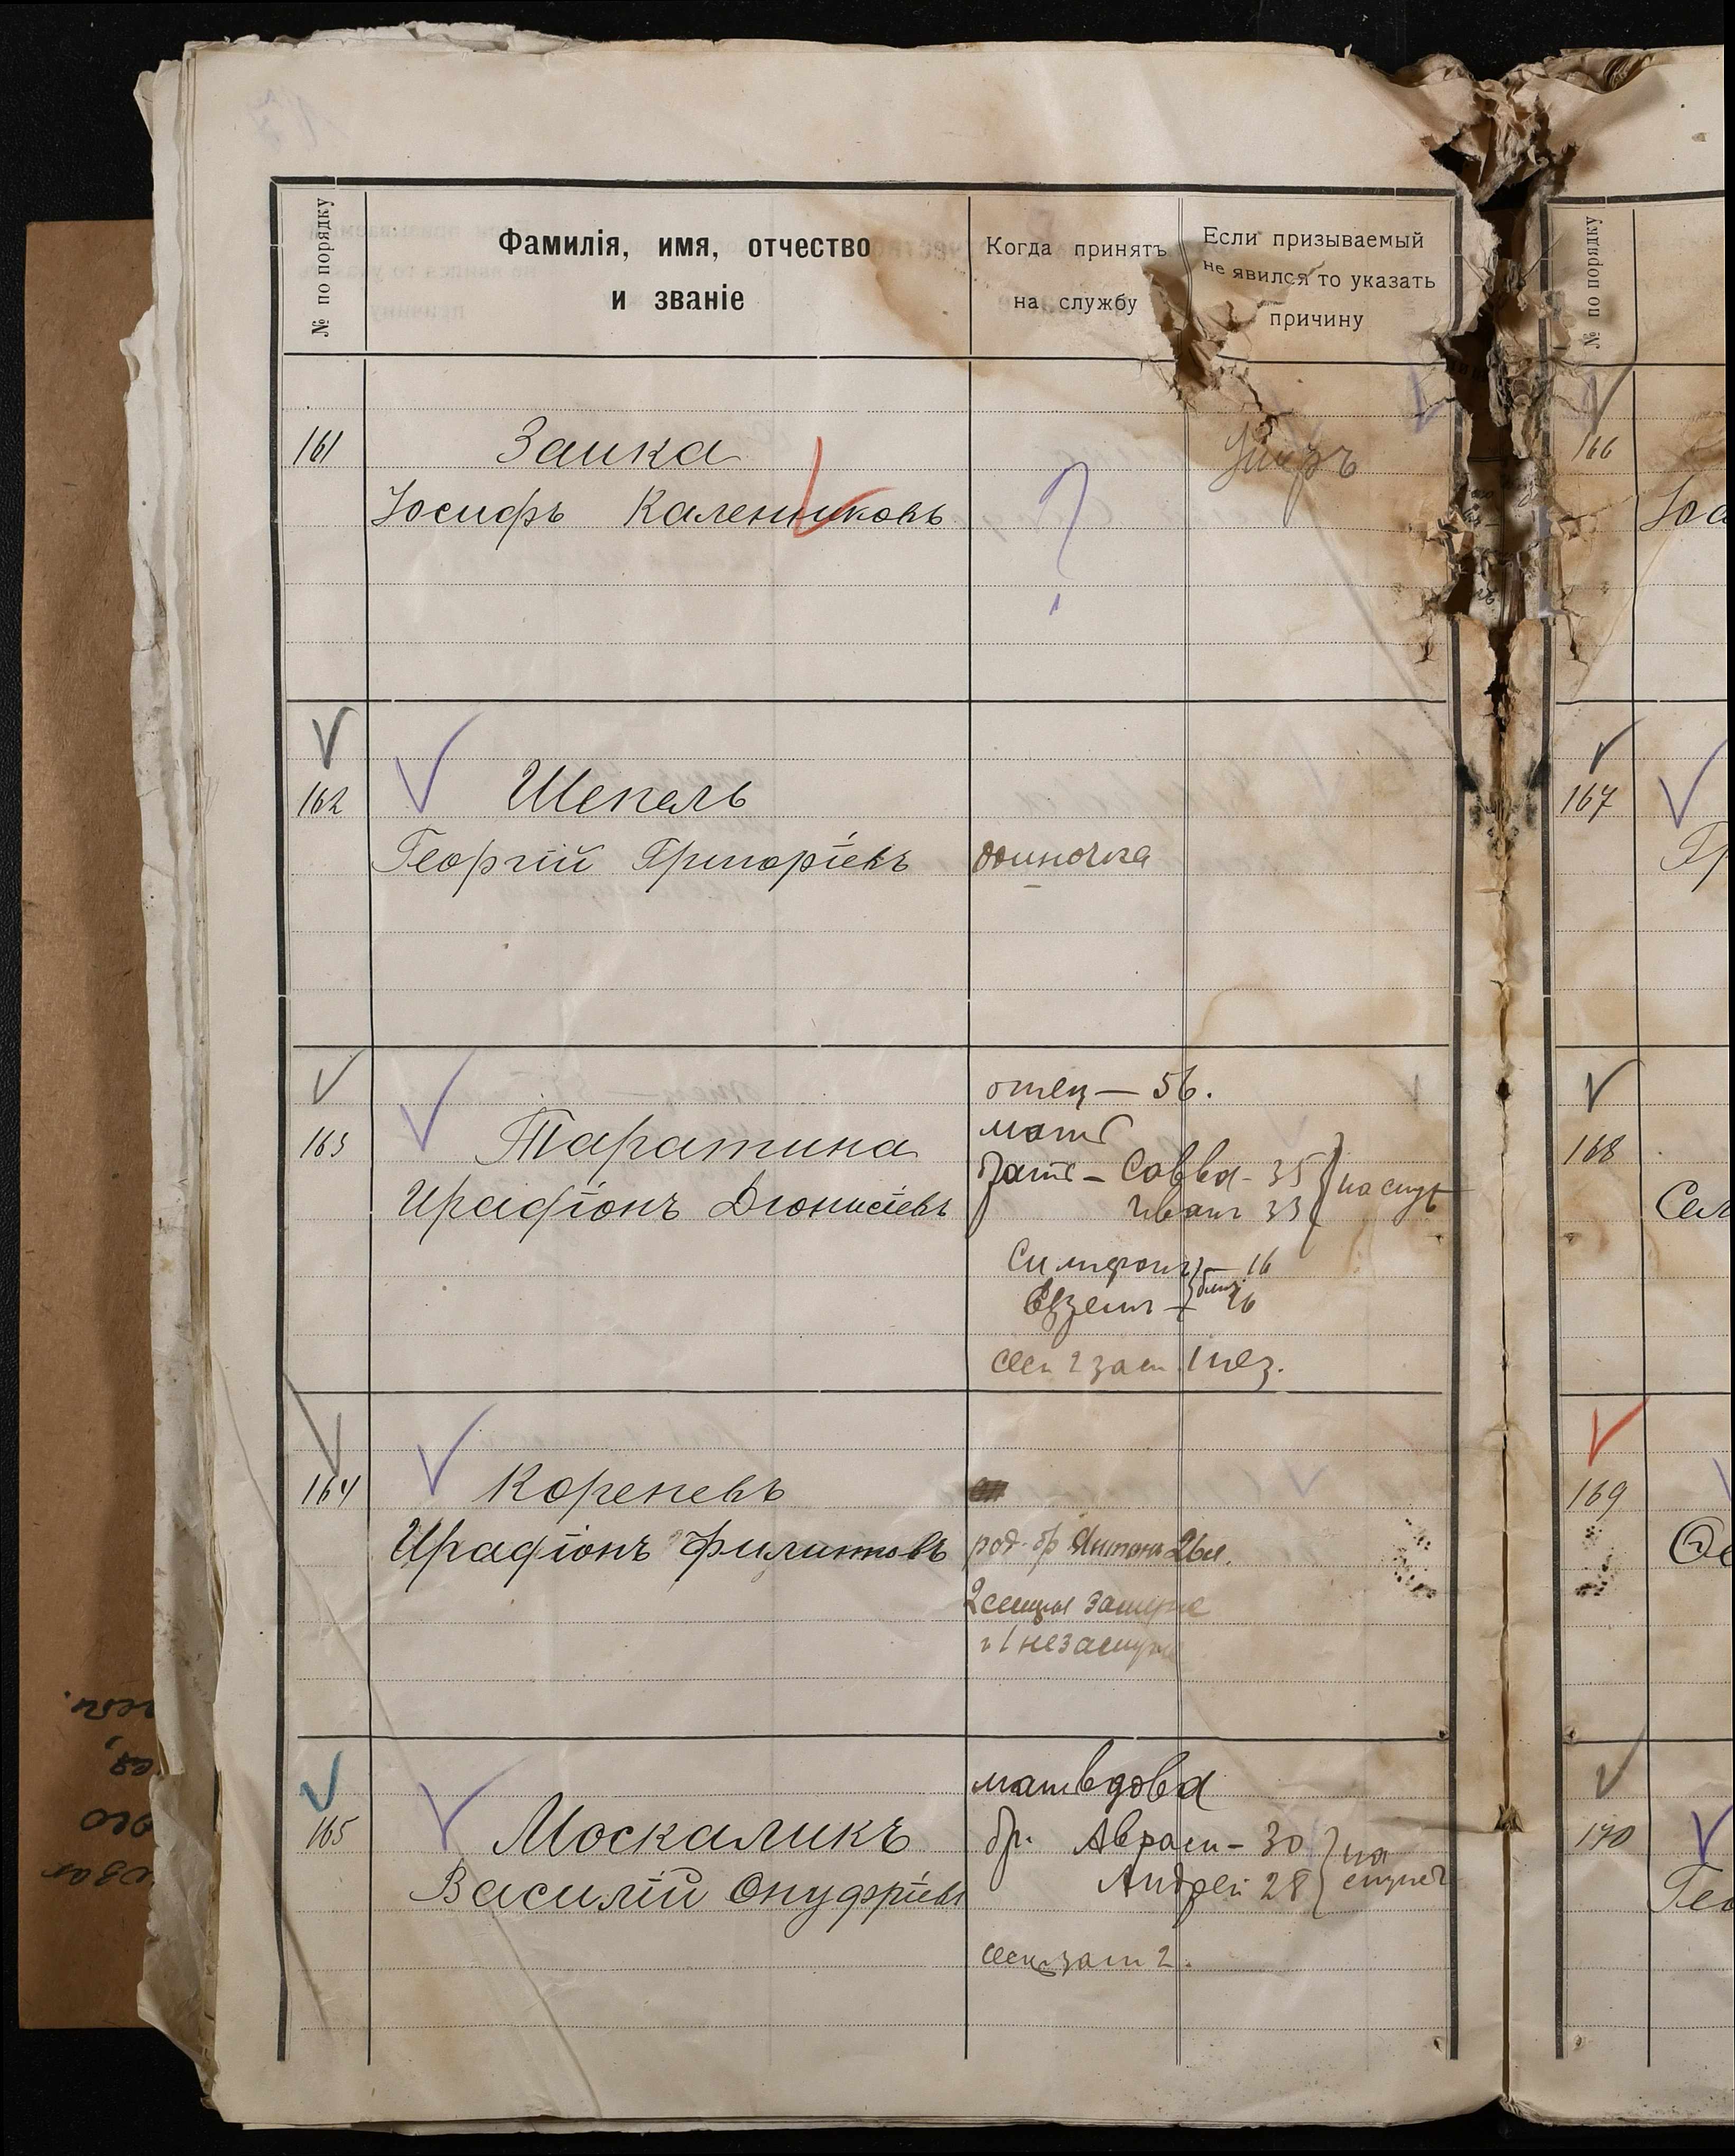 № по порядку
Фамилія, имя, отчество
и званіе
Когда принятъ
на службу
Если призываемый
не явился то указать
причину
161
Заика
Іосифъ Каленниковъ
?
162
Шепель
Георгій Григоріевъ
одиночка
163
Таратина
Ирафіонъ Діонисіевъ
отец — 56.
мать
братъ - Савва - 35
Иванъ 33
16
16
сес 2 зам 1 нез.
164
Кореневъ
Ирафіонъ Филиповъ
род. бр Антонъ 26л.
2 сестры замуже
165
Москаликъ
Василій Онуфріевъ
мат вдова
бр. Аврам - 30
Андрей 28
на
зам 2.
№ по порядку
166
167
168
169
170